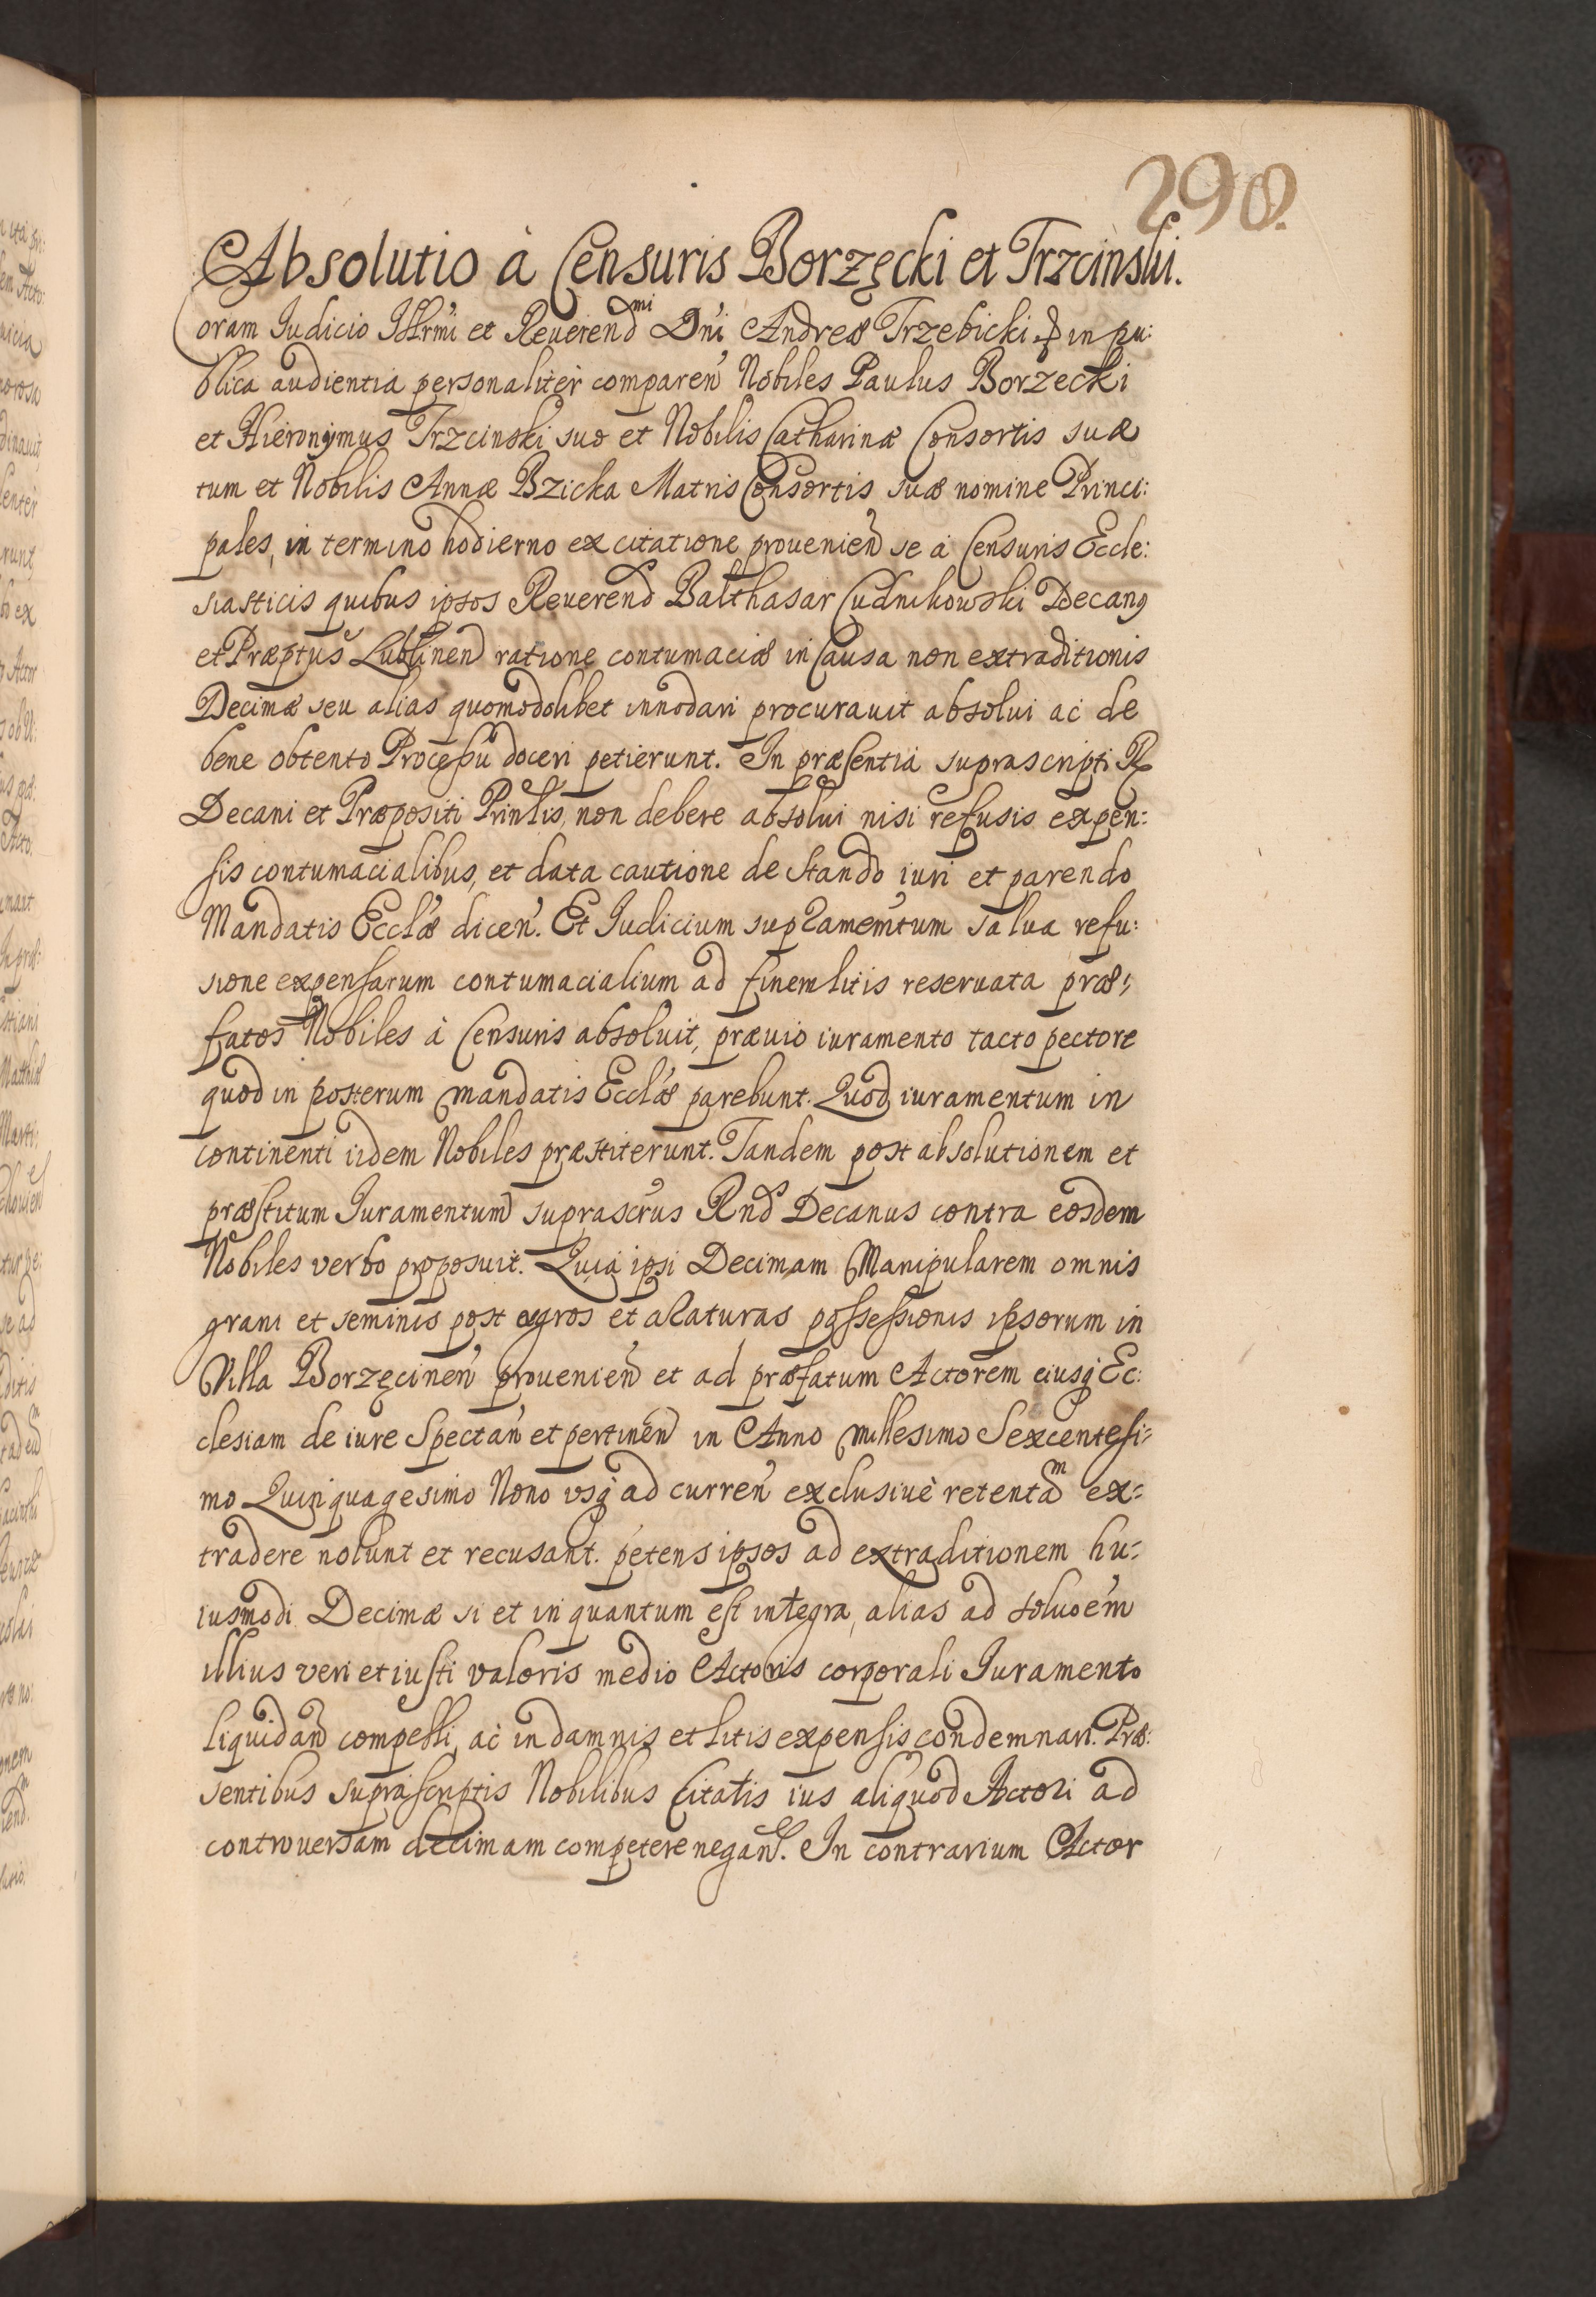 298.
Absolutio à Censuris Borzęcki et Trzcinski.
Coram Iudicio Illrmi et Reuerendmi Dni Andreæ Trzebicki in pu:
blica audientia personaliter comparen Nobiles Paulus Borzecki
et Hieronymus Trzcinski suo et Nobilis Catharinæ Consortis suæ
tum et Nobilis Annæ Bzicka Matris Consortis suæ nomine Princi:
pales, in termino hodierno ex citatione prouenien se à Censuris Eccle:
siasticis quibus ipsos Reuerend Balthasar Cudnikowski Decang
et Præptus Lublinen ratione contumaciæ in Causa non extraditionis
Decimæ seu alias quomodolibet innodari procurauit absolui ac de
bene obtento Processu doceri petierunt. In præsentia suprascripti R
Decani et Præpositi Prinlis, non debere absolui nisi refusis expen:
sis contumacialibus, et data cautione de stando iuri et parendo
Mandatis Ecclæ dicen. Et Iudicium supramemtum salua refu:
sione expensarum contumacialium ad finem litis reseruata præ:
fatos Nobiles à Censuris absoluit, præuio iuramento tacto pectore
quod in posterum mandatis Ecclæ parebunt. Quod iuramentum in
continenti iidem Nobiles præstiterunt. Tandem post absolutionem et
præstitum Iuramentum suprascrus Rnd Decanus contra eosdem
Nobiles verbo proposuit. Quia ipsi Decimam Manipularem omnis
grani et seminis post agros et araturas possessionis ipsorum in
Villa Borzęcinen prouenien et ad præfatum Actorem eiusq Ec:
clesiam de iure Spectan et pertinen in Anno Millesimo Sexcentesi:
mo Quinquagesimo Nono vsq ad curren exclusiuè retentam ex:
tradere nolunt et recusant. petens ipsos ad extraditionem hu:
iusmodi Decimæ si et in quantum est integra, alias ad soluoem
illius veri et iusti valoris medio Actoris corporali Iuramento
liquidan compelli, ac in damnis et litis expensis condemnari. Præ:
sentibus supra scriptis Nobilibus Citatis ius aliquod Actori ad
controuersam decimam competere negan. In contrarium Actor